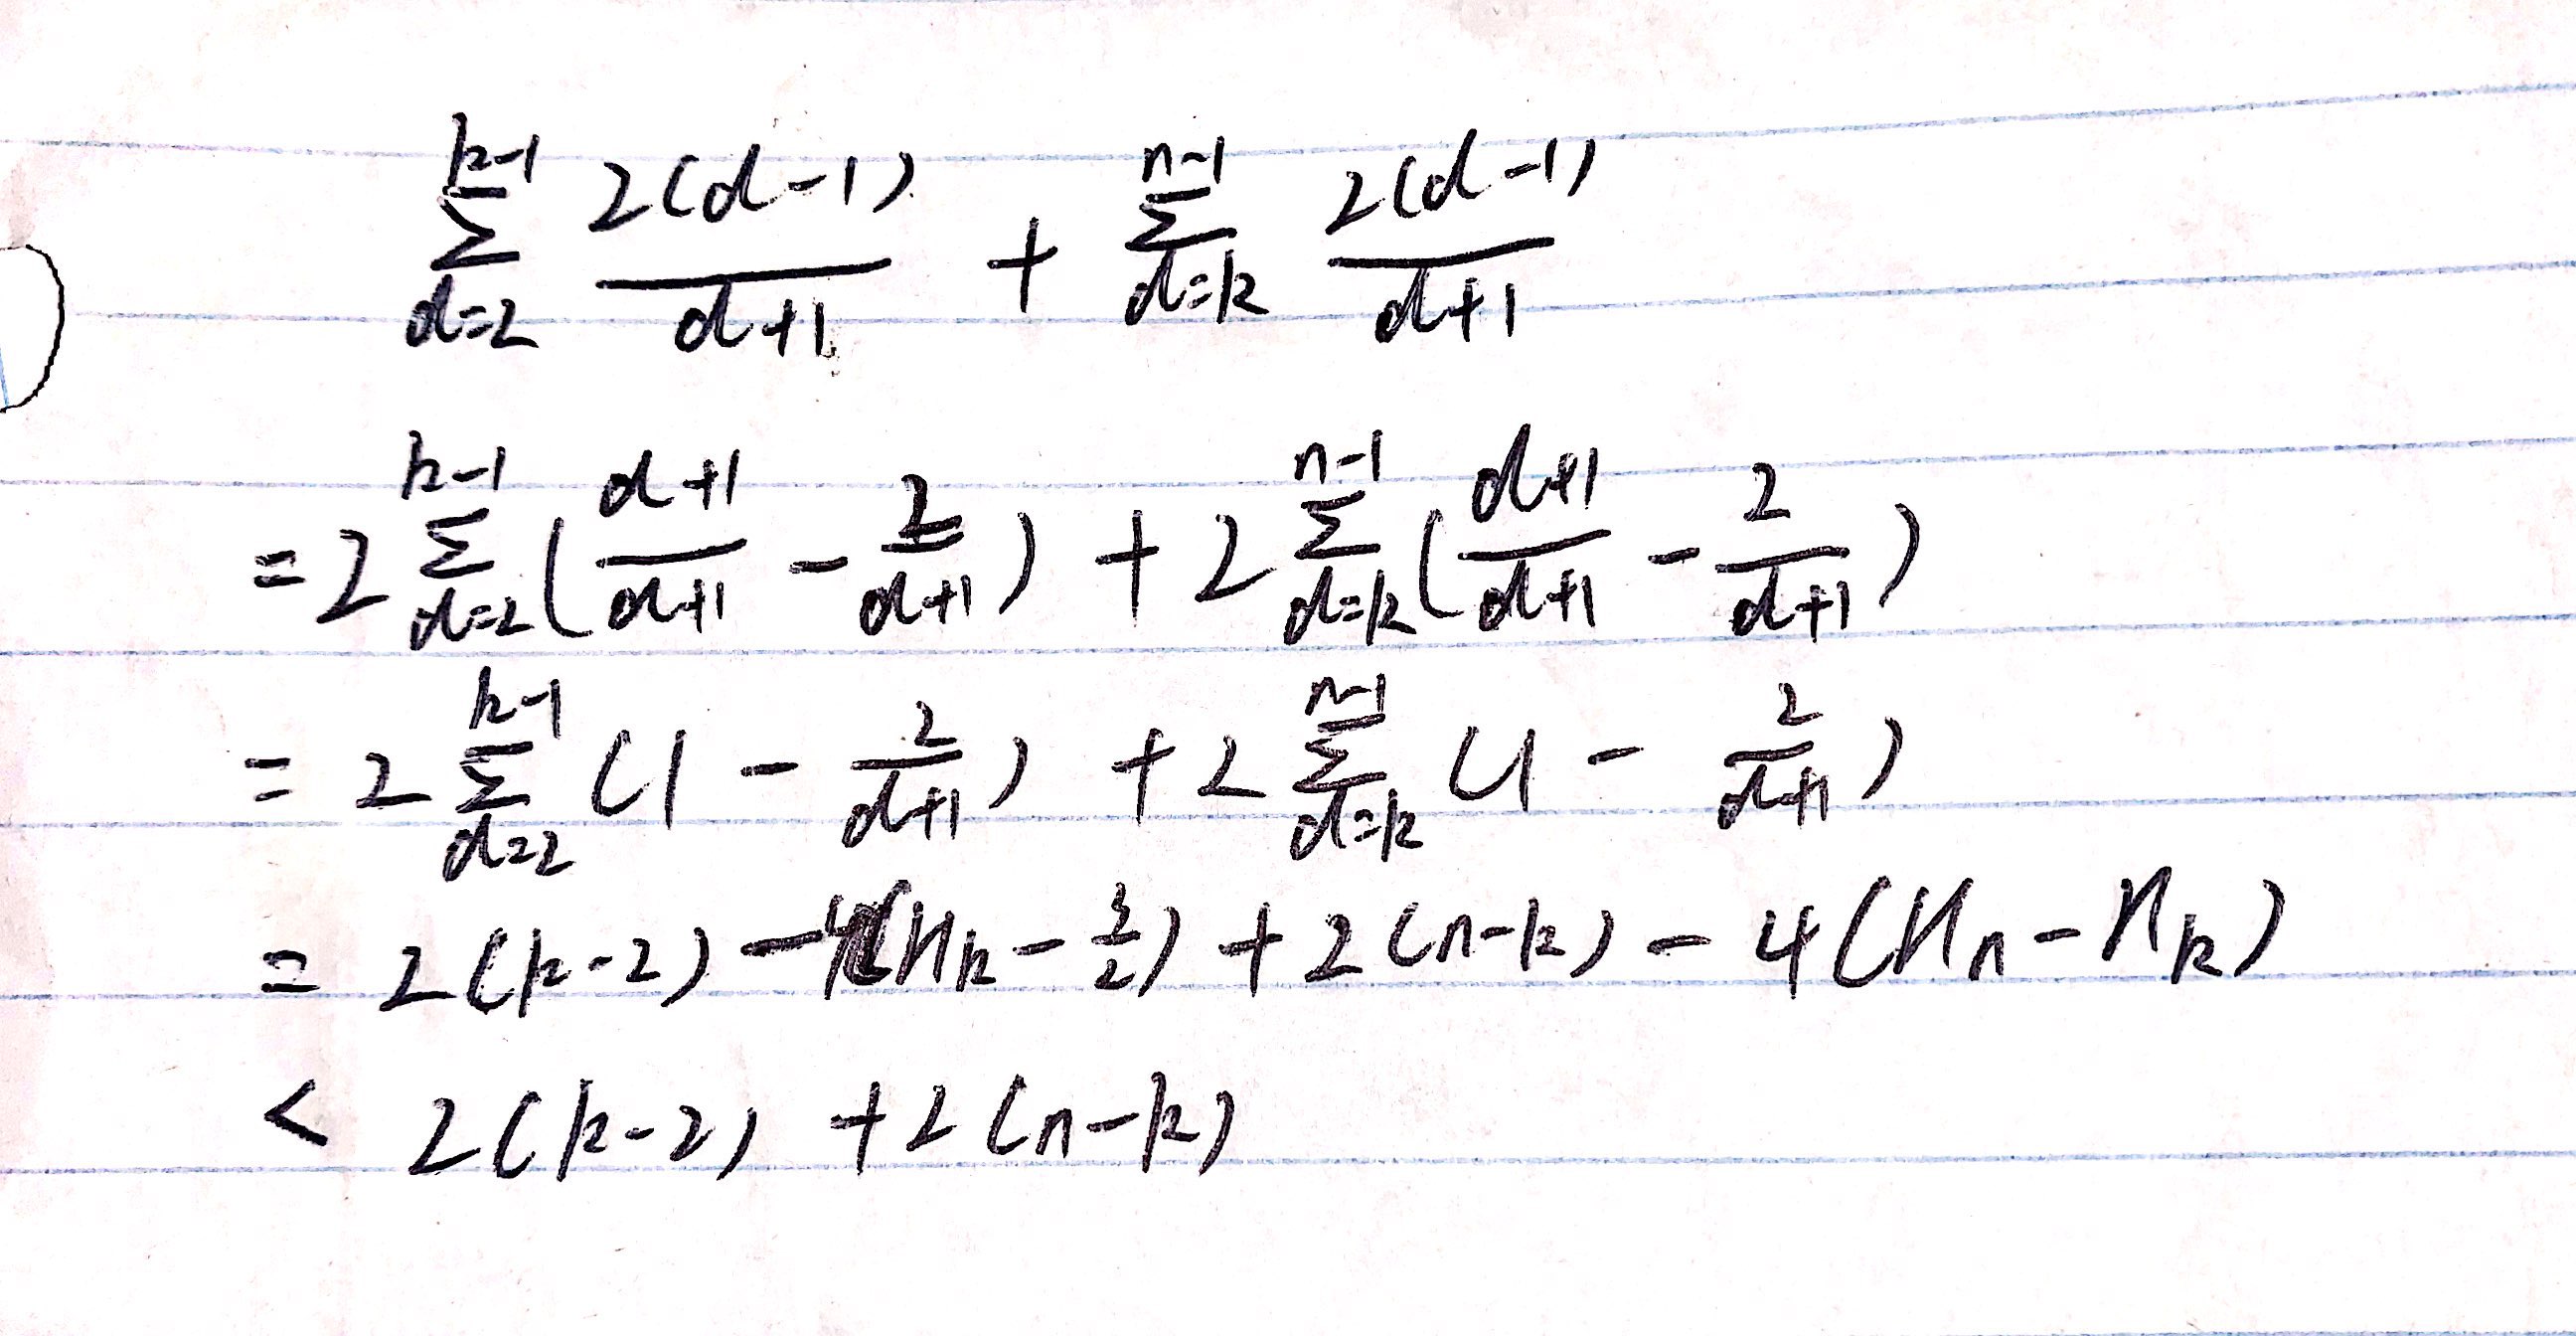 $\sum_{d=2}^{k-1} \frac{2(d-1)}{d+1} + \sum_{d=k}^{n-1} \frac{2(d-1)}{d+1}$
$= 2\sum_{d=2}^{k-1} (\frac{d+1}{d+1} - \frac{2}{d+1}) + 2\sum_{d=k}^{n-1} (\frac{d+1}{d+1} - \frac{2}{d+1})$
$= 2\sum_{d=2}^{k-1} (1 - \frac{2}{d+1}) + 2\sum_{d=k}^{n-1} (1 - \frac{2}{d+1})$
$= 2(k-2) - 4(H_k - \frac{3}{2}) + 2(n-k) - 4(H_n - H_k)$
$< 2(k-2) + 2(n-k)$